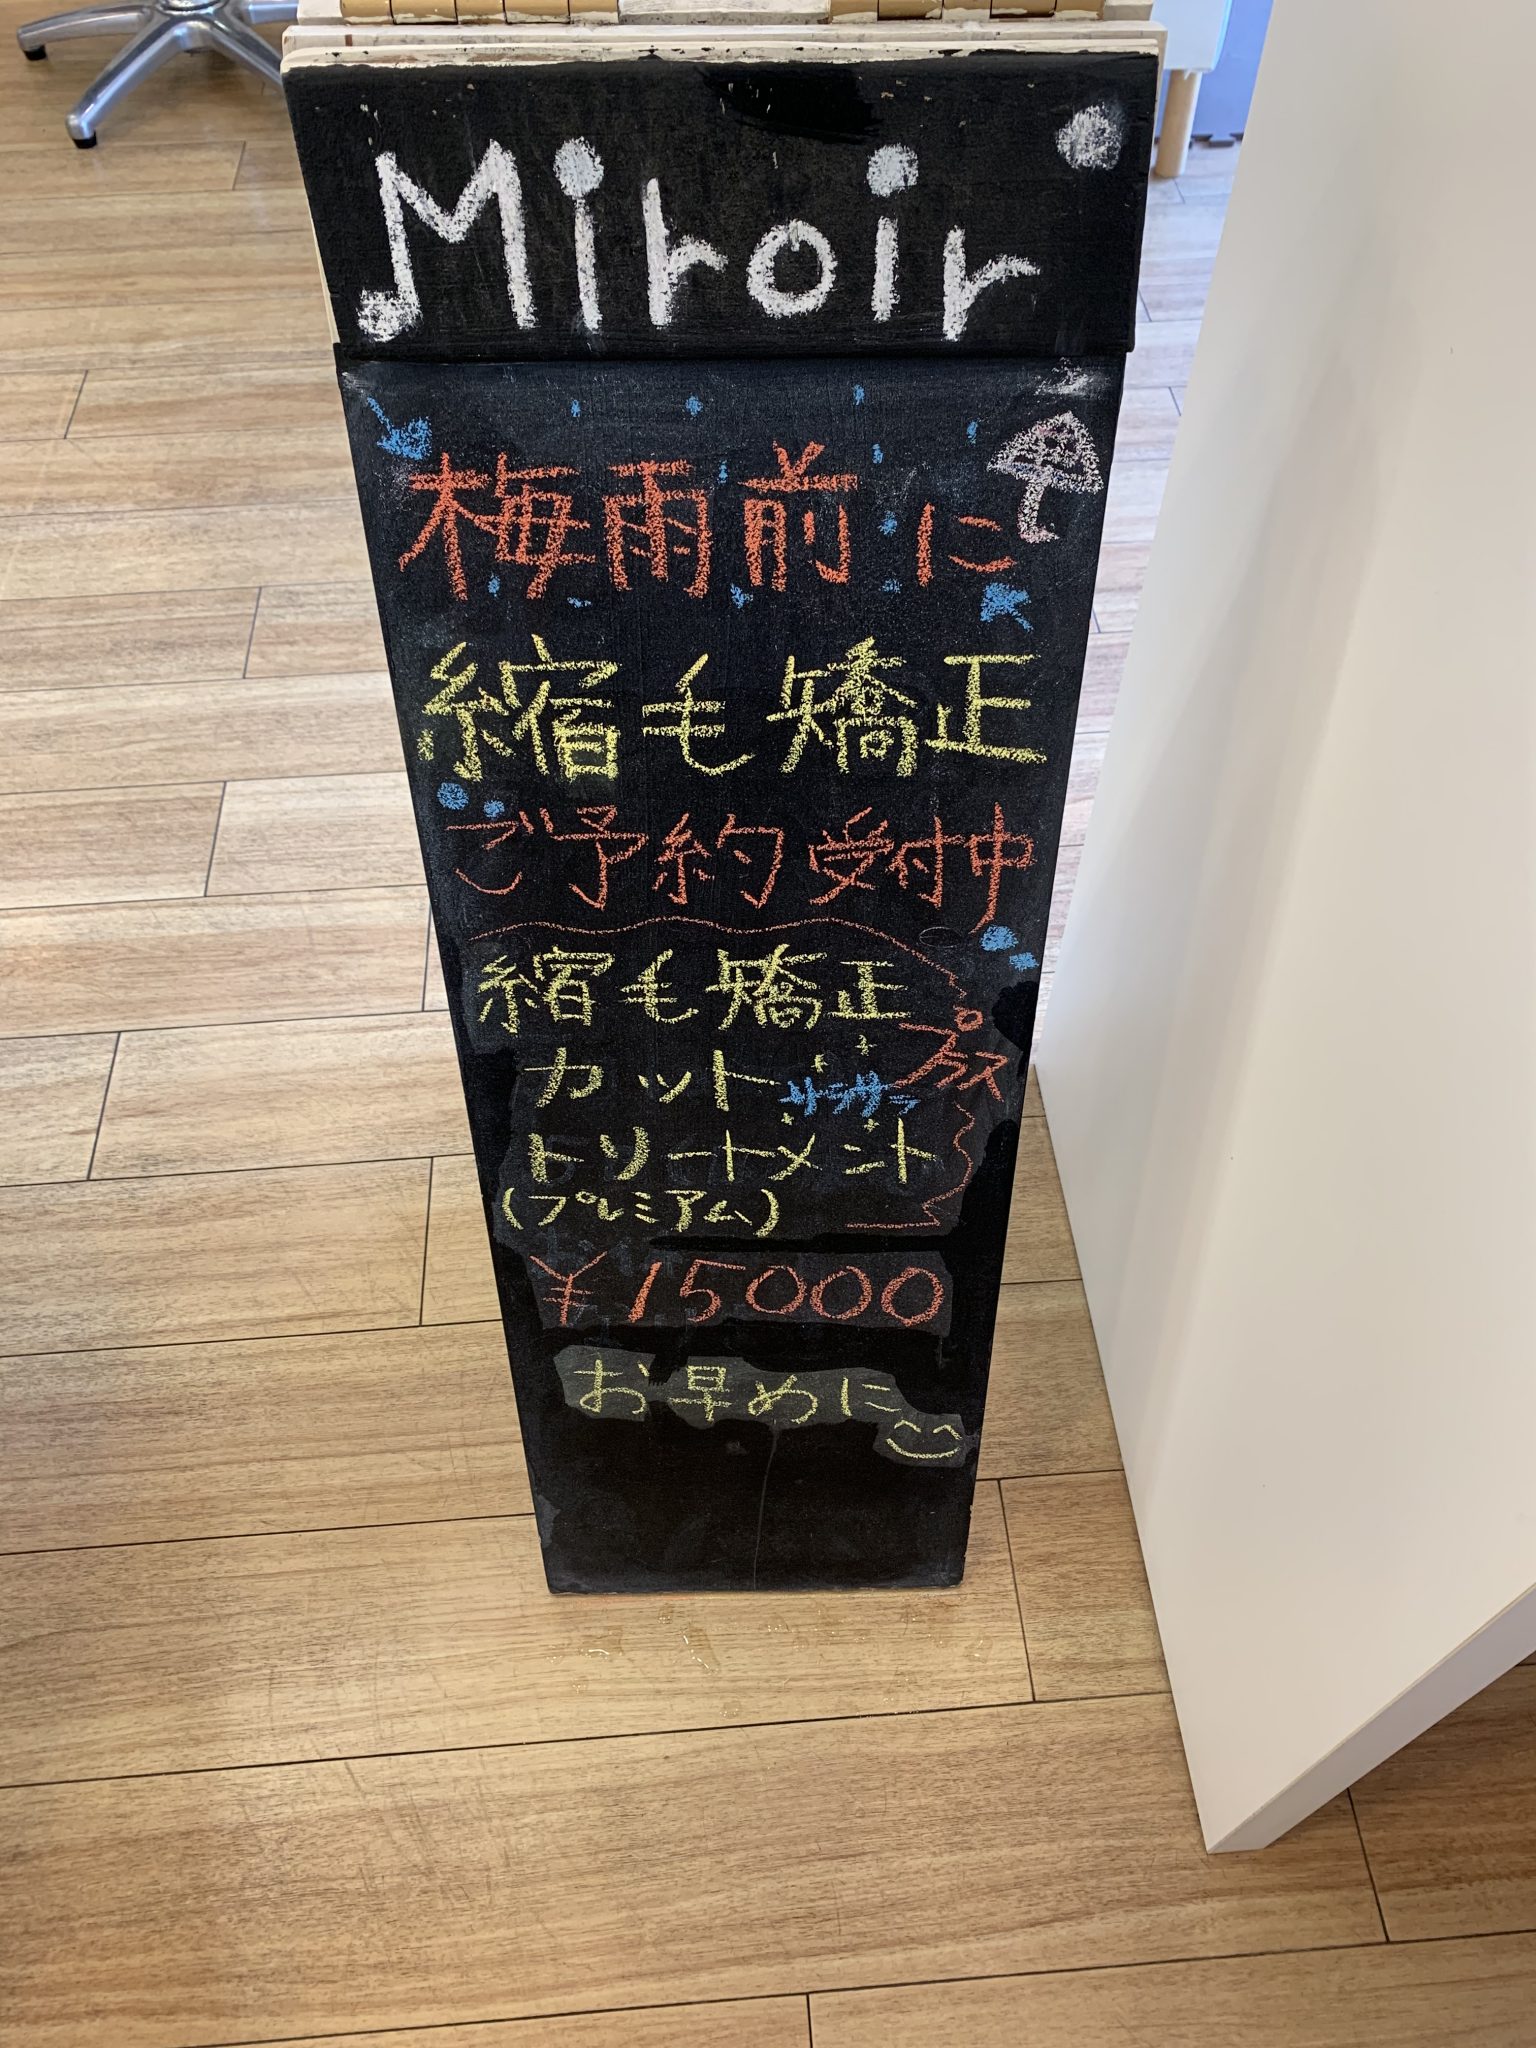 Miroir
梅雨前に
縮毛矯正
ご予約受付中
縮毛矯正
プラス
カット
サラサラ
トリートメント
(プレミアム)
¥15000
お早めに